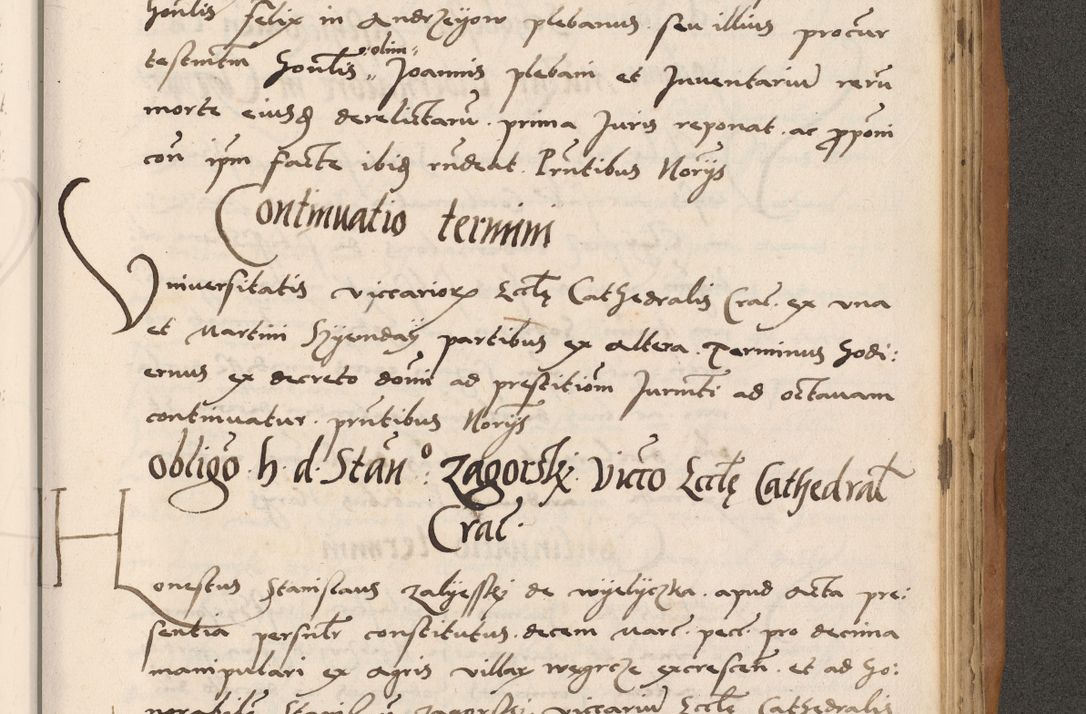 Honlis felix in Andrzeyow plebanus seu illius procur
testmtm Honlis olim Joannis plebani et Inventariu reru
morte eiusd derelictaru . prima Juris reponat . ac proponi
con ipm facte ibid rndeat . Prntibus Norijs
Continuatio termini
Vniversitatis viccariorx Eccle Cathedralis Crac . ex vna
et Martini partibus ex altera . Terminus hodi:
ernus ex decreto domi ad prestitiom Jurmti ad octauam
continuatur . prntibus Norijs
obligo . h . d . Stano : Zagorski Vicco Eccle Cathedral
Crac .
Honestus Stanislaus zalyesski de wyelyczka . apud Acta pre:
sentia persnlr constitutus . decem marc . pecc . pro decima
manipulari ex agris villar wegrcze excrescen . et ad ho:
norabilem zagorski viccariu Eccle Cathedralis